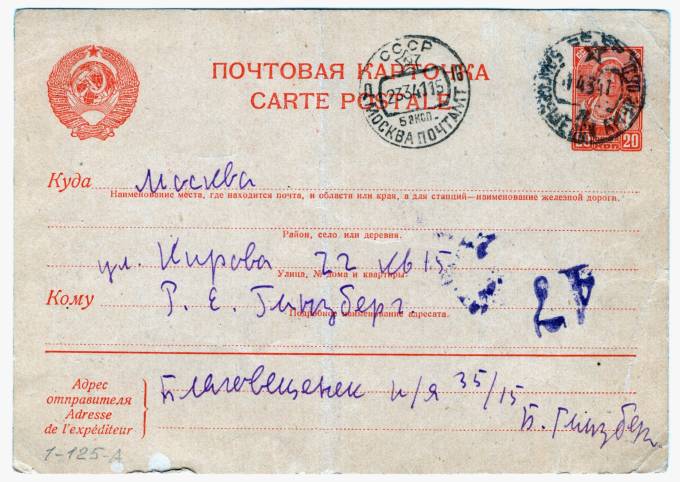 ПОЧТОВАЯ КАРТОЧКА
CARTE POSTALE
СССР
23 3 41 15
МОСКВА ПОЧТАМТ
20
КОП
Куда Москва
Наименование места, где находится почта, и области или края, а для станций—наименование железной дороги.
Район, село или деревня.
ул. Кирова 22 кв 15
Улица, № дома и квартиры.
Кому Р. Е. Гинзберг
Подробное наименование адресата.
Адрес
отправителя
Adresse
de l'expéditeur
Благовещенск п/я 35/15
Б. Гинзберг.
1-125-А